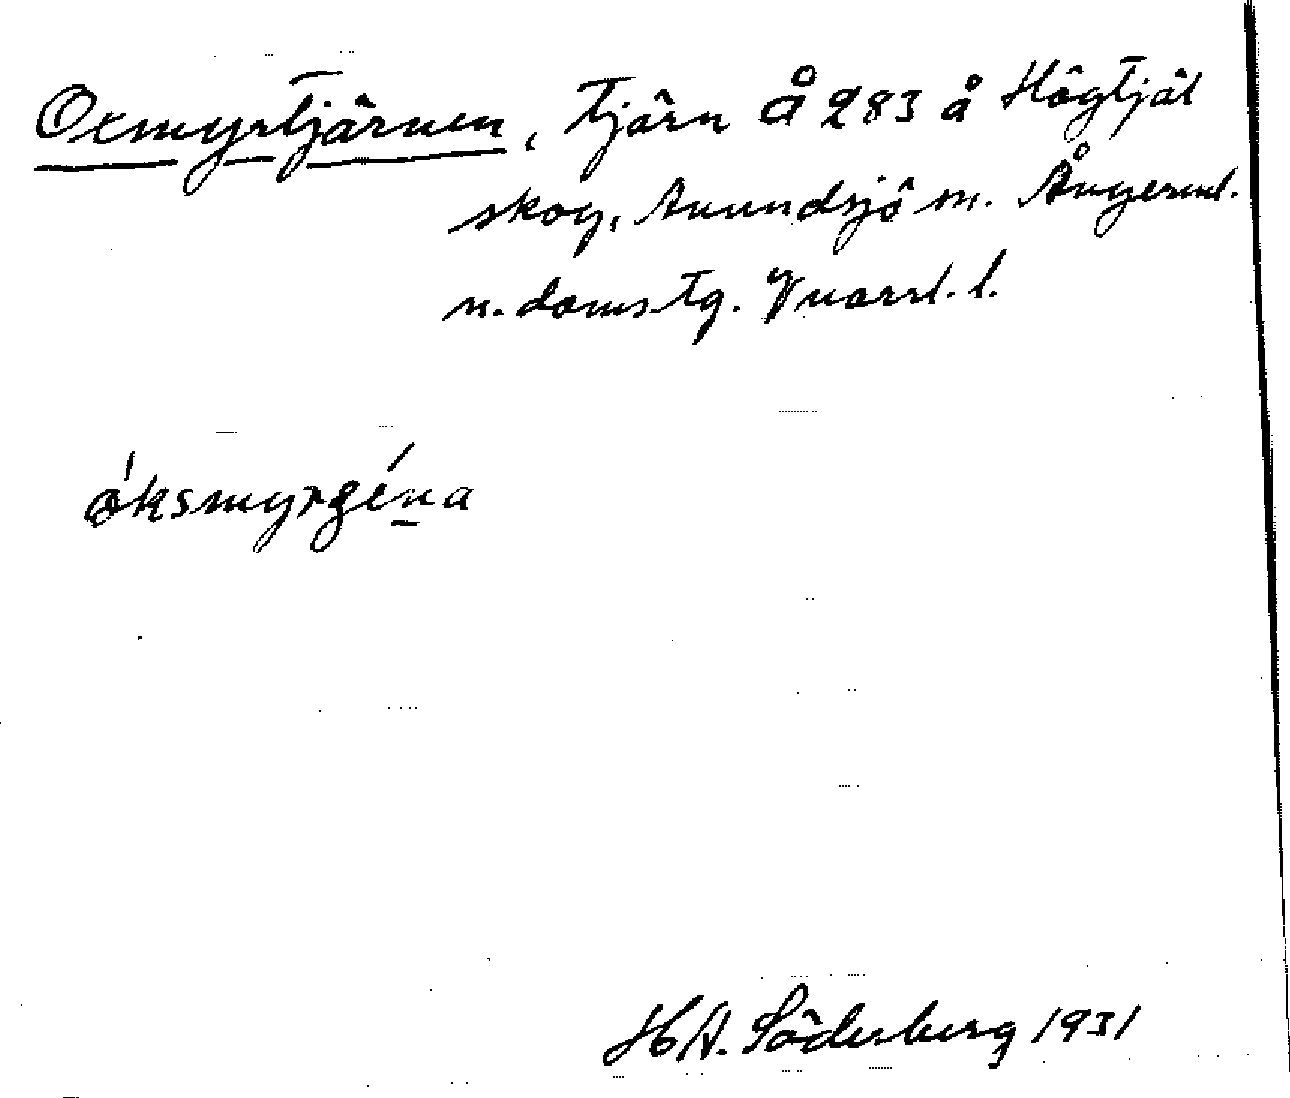 Oxmyrtjärnen, tjärn Å 283 å Högtjäl
skog, Anundsjö sn. Ångerml.
n. doms.tg. Vnorrl. l.
óksmyrǥéna
HA. Söderberg 1931